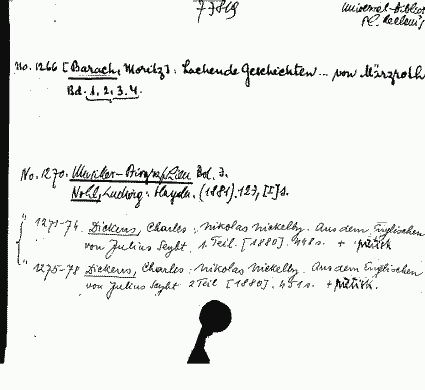 77819
Universal-Biblio
Ph. Reclam's
No. 1266 [Barach, Moritz]: Lachende Geschichten... von Märzroth
Bd. 1, 2, 3. 4.
No. 1270. Musiker-Biografien Bd. 3.
Nohl, Ludwig: Haydn. (1881). 127, [I] s.
" 1271-74. Dickens, Charles: Nikolas Nickelby. Aus dem Englischen
von Julius Seybt. 1 Teil. [1880]. 448 s. +
" 1275-78 Dickens, Charles: Nikolas Nickelby. Aus dem Englischen
von Julius Seybt 2 Teil [1880]. 451 s. +